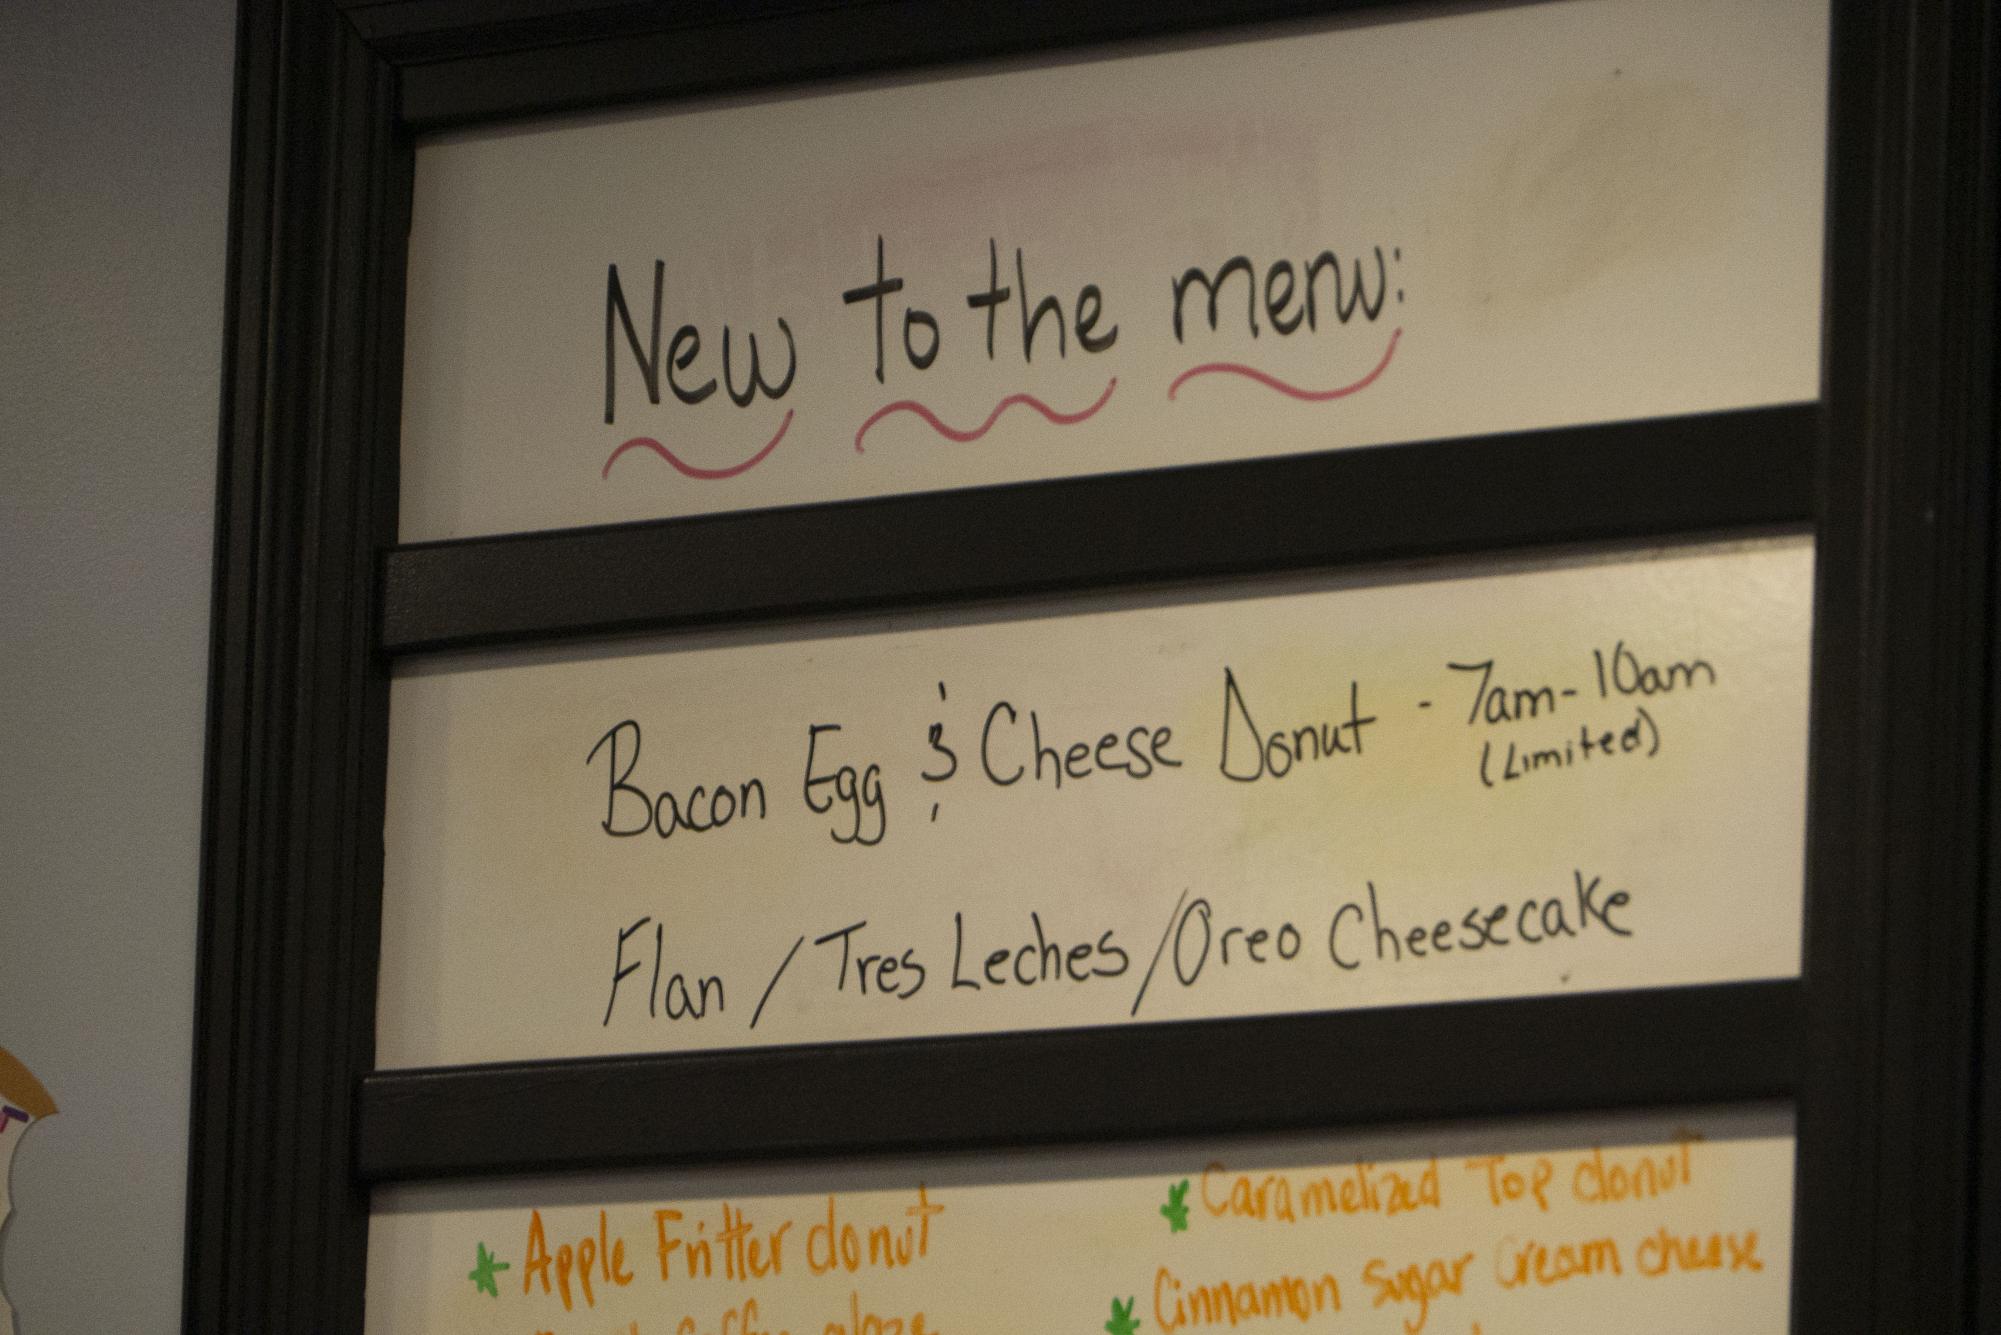 New to the menu:
Bacon Egg & Cheese Donut - 7am-10am
(Limited)
Flan / Tres Leches / Oreo Cheesecake
* Apple Fritter donut
glaze
* Caramelized Top donut
* Cinnamon sugar cream cheese